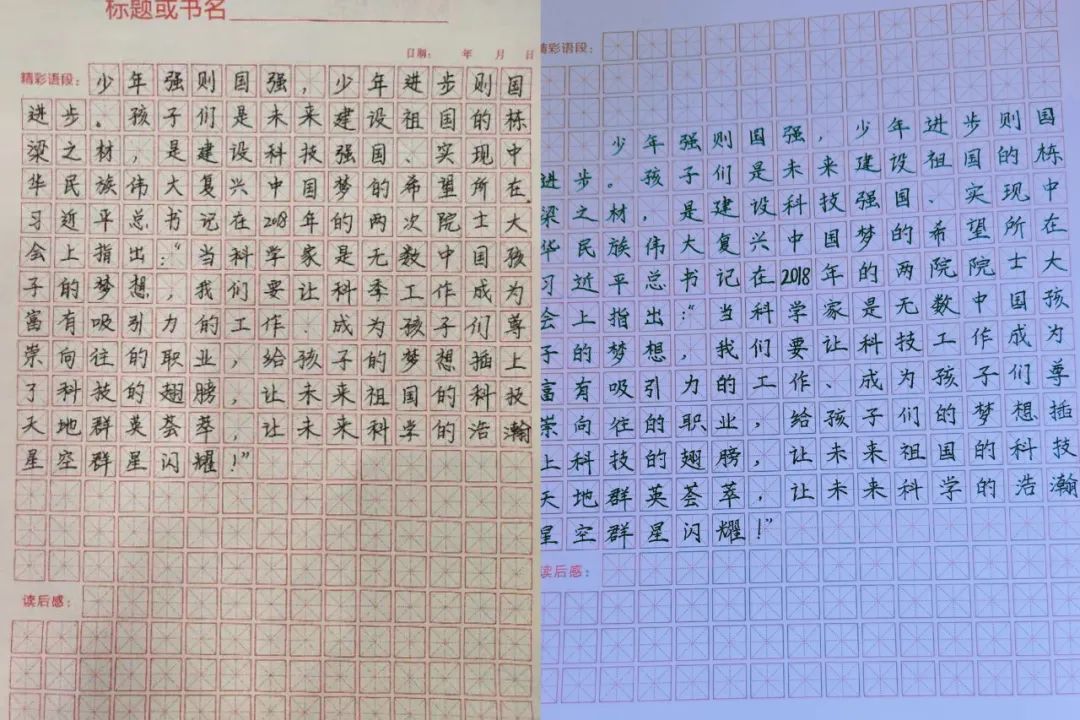 标题或书名
日期: 年 月 日
精彩语段: 少年强则国强,少年进步则国
进步。孩子们是未来建设祖国的栋
梁之材,是建设科技强国、实现中
华民族伟大复兴中国梦的希望所在。
习近平总书记在2018年的两次院士大
会上指出:“当科学家是无数中国孩
子的梦想,我们要让科季工作成为
富有吸引力的工作、成为孩子们尊
崇向往的职业,给孩子的梦想插上
了科技的翅膀,让未来祖国的科技
天地群英荟萃,让未来科学的浩瀚
星空群星闪耀!”
读后感:
精彩语段:
少年强则国强,少年进步则国
进步。孩子们是未来建设祖国的栋
梁之材,是建设科技强国、实现中
华民族伟大复兴中国梦的希望所在
习近平总书记在2018年的两院院士大
会上指出:“当科学家是无数中国孩
子的梦想,我们要让科技工作成为
富有吸引力的工作、成为孩子们尊
崇向往的职业,给孩子们的梦想插
上科技的翅膀,让未来祖国的科技
天地群英荟萃,让未来科学的浩瀚
星空群星闪耀!”
读后感: